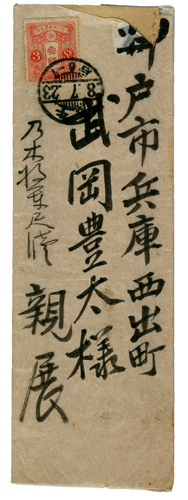 神戸市兵庫西出町
武岡豊太様
親展
乃木将軍尺牘
3
3
8.7.23